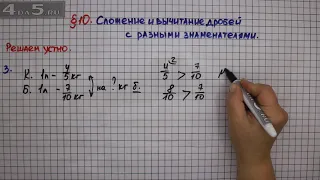 4DA5.RU
§10. Сложение и вычитание дробей
с разными знаменателями.
Решаем устно.
3.
К. 1п - 4/5 кг
Б. 1п - 7/10 кг
на ? кг б.
4/5 ² > 7/10
8/10 > 7/10